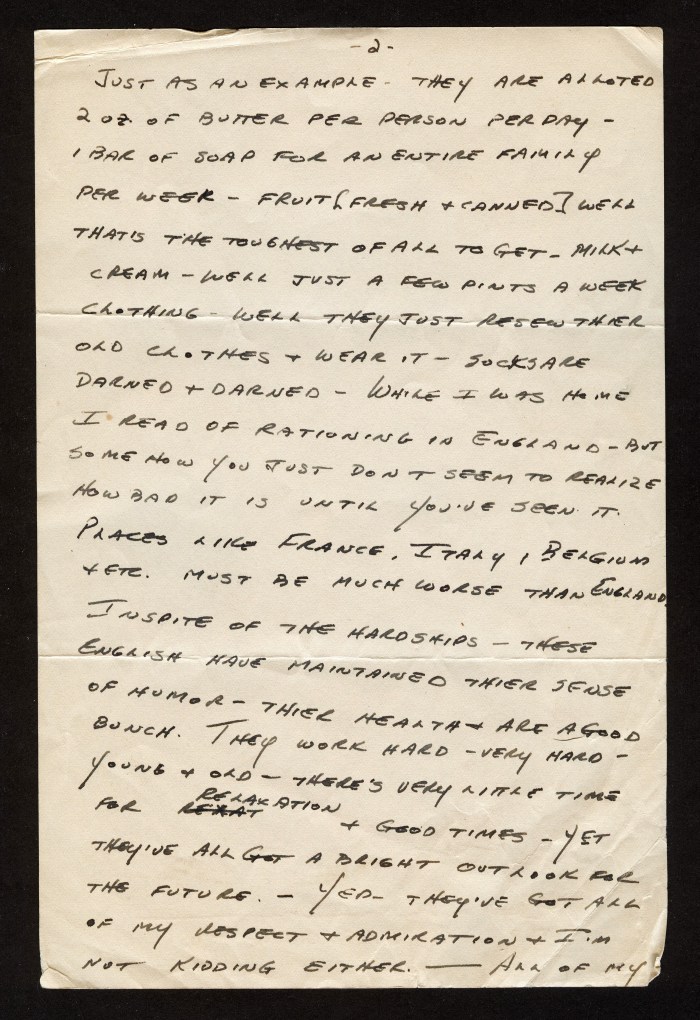 -2-
JUST AS AN EXAMPLE - THEY ARE ALLOTED
2 oz OF BUTTER PER PERSON PER DAY -
1 BAR OF SOAP FOR AN ENTIRE FAMILY
PER WEEK - FRUIT [FRESH + CANNED] WELL
THAT'S THE TOUGHEST OF ALL TO GET - MILK +
CREAM - WELL JUST A FEW PINTS A WEEK
CLOTHING - WELL THEY JUST RESEW THIER
OLD CLOTHES + WEAR IT - SOCKS ARE
DARNED + DARNED - WHILE I WAS HOME
I READ OF RATIONING IN ENGLAND - BUT
SOME HOW YOU JUST DON'T SEEM TO REALIZE
HOW BAD IT IS UNTIL YOU'VE SEEN IT.
PLACES LIKE FRANCE, ITALY, BELGIUM
+ ETC. MUST BE MUCH WORSE THAN ENGLAND.
INSPITE OF THE HARDSHIPS - THESE
ENGLISH HAVE MAINTAINED THIER SENSE
OF HUMOR - THIER HEALTH + ARE A GOOD
BUNCH. THEY WORK HARD - VERY HARD -
YOUNG + OLD - THERE'S VERY LITTLE TIME
FOR RELAXATION + GOOD TIMES - YET
THEY'VE ALL GOT A BRIGHT OUTLOOK FOR
THE FUTURE. - YEP - THEY'VE GOT ALL
OF MY RESPECT + ADMIRATION + I'M
NOT KIDDING EITHER. — ALL OF MY